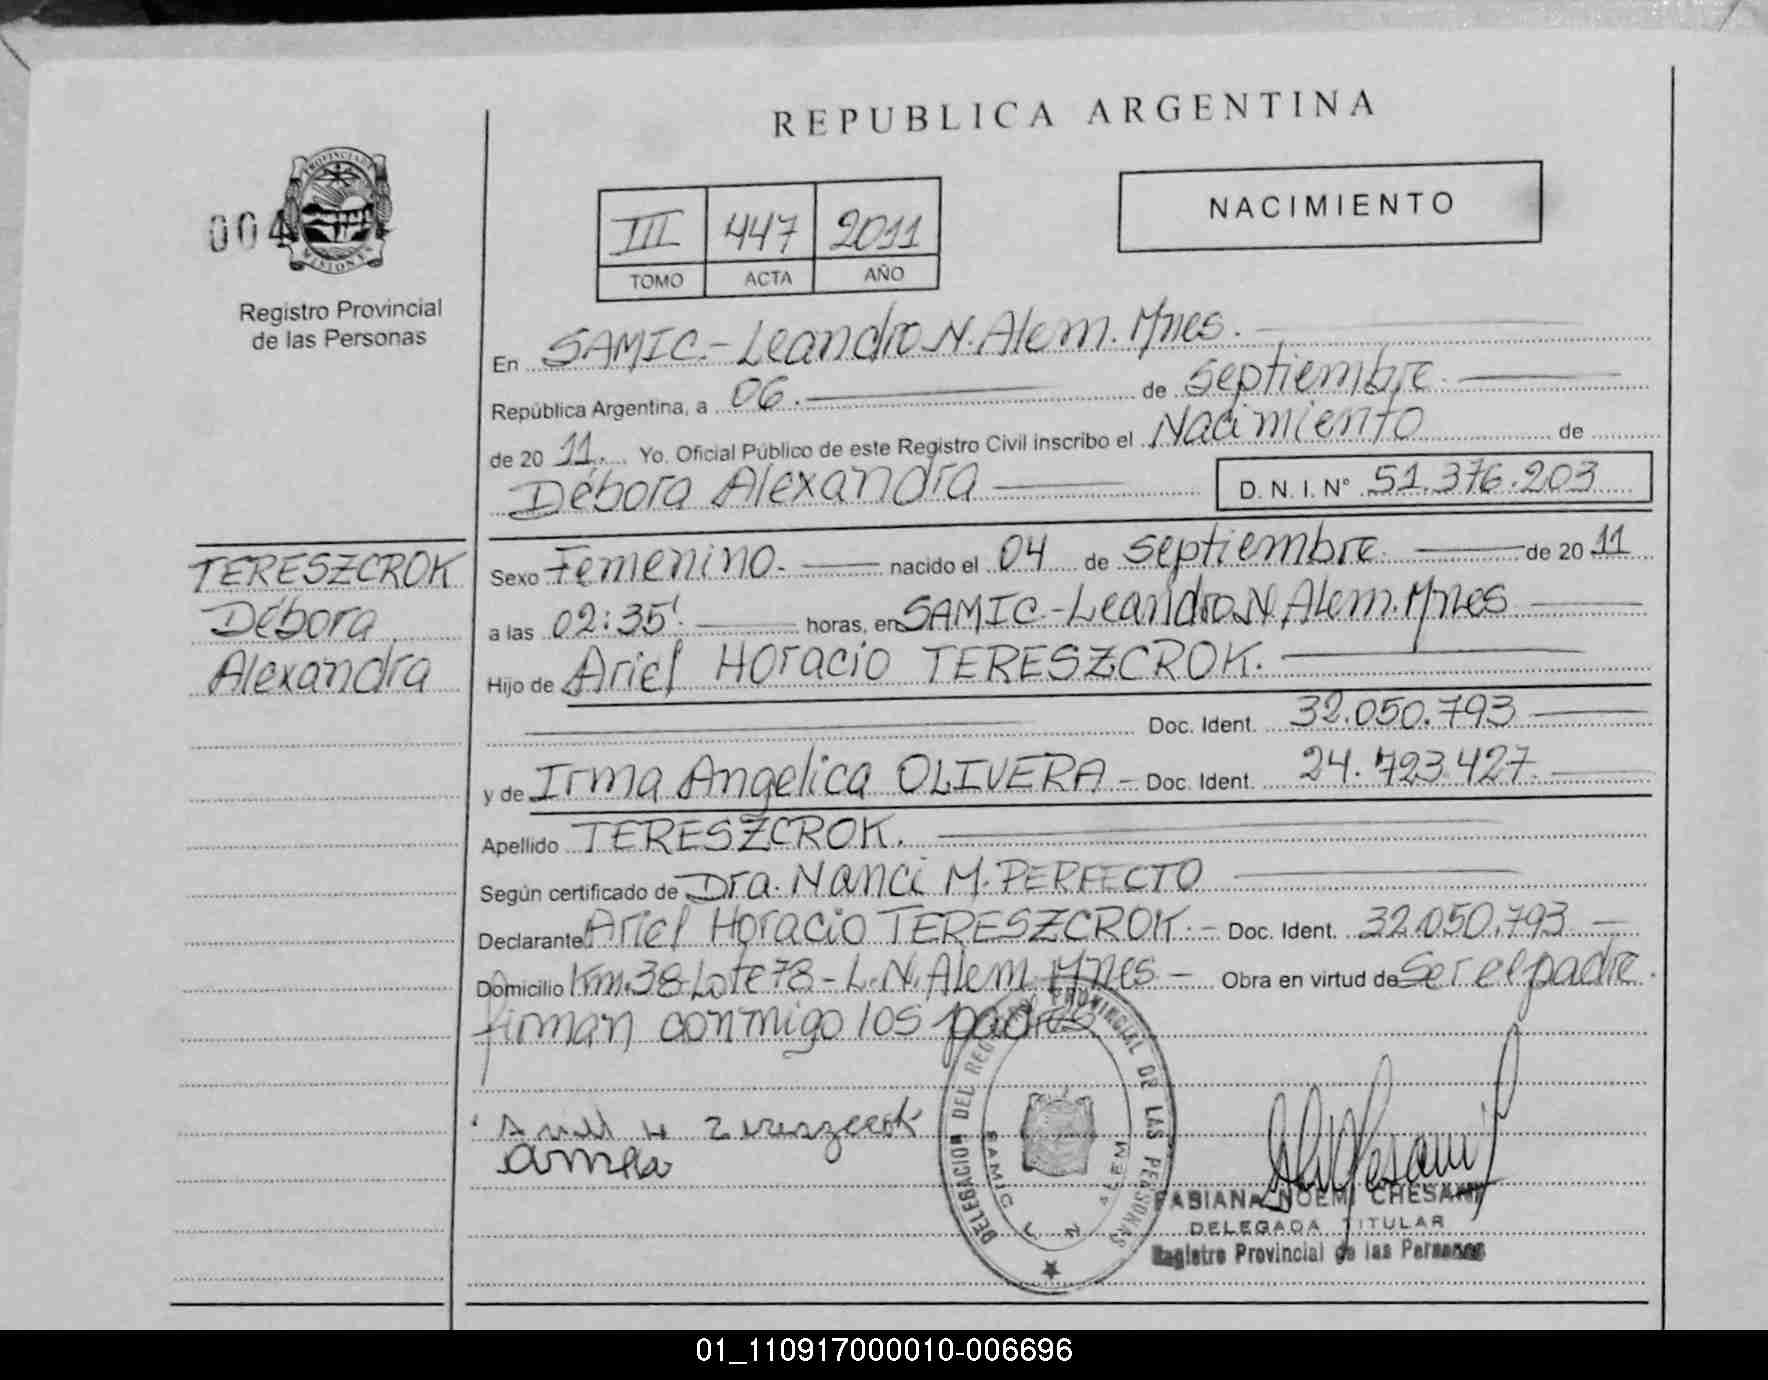 REPUBLICA ARGENTINA
NACIMIENTO
004
PROVINCIA DE
MISIONES
Registro Provincial
de las Personas
III 447 2011
TOMO ACTA AÑO
En SAMIC.-Leandro N. Alem. Mnes.
República Argentina, a 06. de septiembre.
de 20 11. Yo. Oficial Público de este Registro Civil inscribo el Nacimiento de
Débora Alexandra D. N. I. Nº 51.376.203
TERESZCROK
Débora
Alexandra
Sexo Femenino. nacido el 04 de septiembre. de 20 11
a las 02:35'. horas, en SAMIC.-Leandro N. Alem. Mnes
Hijo de Ariel Horacio TERESZCROK.
Doc. Ident. 32.050.793
y de Irma Angelica OLIVERA - Doc. Ident. 24.723.427.
Apellido TERESZCROK.
Según certificado de Dra. Nanci M. PERFECTO
Declarante Ariel Horacio TERESZCROK.- Doc. Ident. 32.050.793
Domicilio Km.38 Lote 78 - L.N. Alem Mnes - Obra en virtud de Ser el padre.
firman conmigo los padres
DELEGACION DEL REGISTRO PROVINCIAL DE LAS PERSONAS
SAMIC L N ALEM
FABIANA NOEMI CHESANI
DELEGADA TITULAR
Registro Provincial de las Personas
01_110917000010-006696